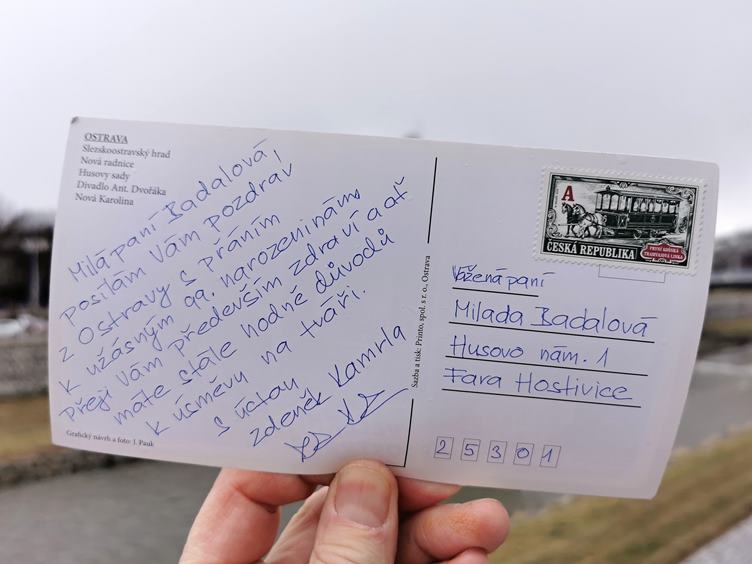 OSTRAVA
Slezskoostravský hrad
Nová radnice
Husovy sady
Divadlo Ant. Dvořáka
Nová Karolina
Milá paní Badalová,
posílám Vám pozdrav
z Ostravy s přáním
k úžasným 99. narozeninám
přeji Vám především zdraví a ať
máte stále hodně důvodů
k úsměvu na tváři.
S úctou
Zdeněk Kamrla
Grafický návrh a foto: J. Pauk
Sazba a tisk: Printo, spol. s r. o., Ostrava
A
ČESKÁ REPUBLIKA
PRVNÍ KOŇSKÁ
TRAMVAJOVÁ LINKA
Vážená paní
Milada Badalová
Husovo nám. 1
Fara Hostivice
25301